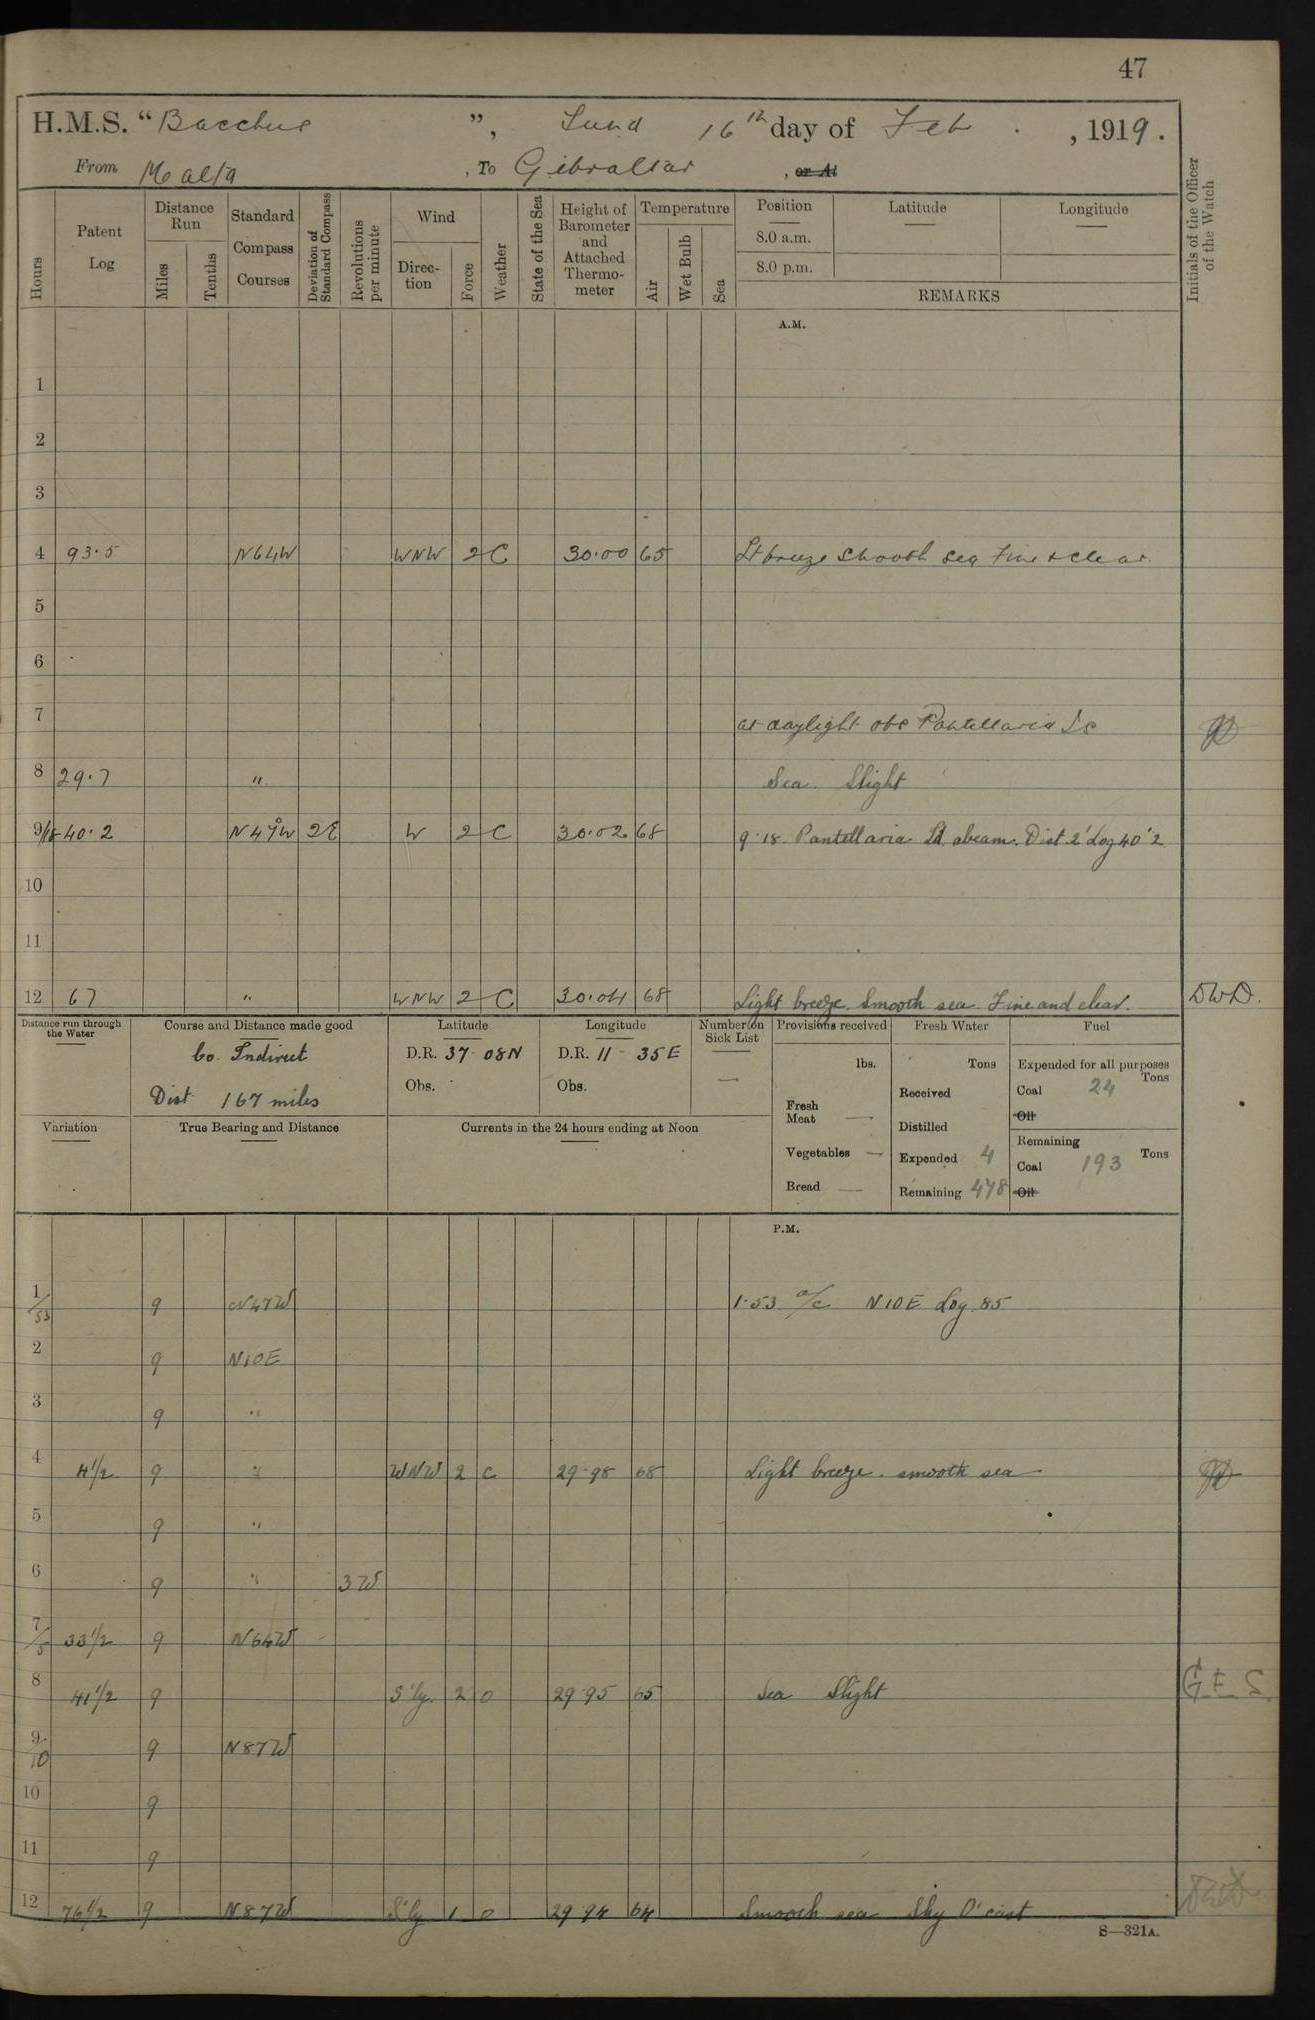 47
H.M.S. "Bacchus", Sund 16th day of Feb., 1919.
From Malta, To Gibraltar, or At
Hours
Patent Log
Distance Run
Miles
Tenths
Standard Compass Courses
Deviation of Standard Compass
Revolutions per minute
Wind
Direction
Force
Weather
State of the Sea
Height of Barometer and Attached Thermometer
Temperature
Air
Wet Bulb
Sea
Position
8.0 a.m.
8.0 p.m.
Latitude
Longitude
REMARKS
Initials of the Officer of the Watch
A.M.
1
2
3
4 93.5 N64W WNW 2 C 30.00 65 Lt breeze Smooth sea Fine & clear.
5
6
7 at daylight obs Pantellaria Is
8 29.7 " Sea Slight
9/18 40.2 N47°W 2E W 2 C 30.02 68 9.18 Pantellaria Id abeam. Dist 2' Log 40'2
10
11
12 67 " WNW 2 C 30.04 68 Light breeze. Smooth sea. Fine and clear. DWD.
Distance run through the Water
Course and Distance made good
Co. Indirect
Dist 167 miles
Latitude
D.R. 37 08N
Obs.
Longitude
D.R. 11 - 35E
Obs.
Number on Sick List
—
Provisions received
lbs.
Fresh Meat —
Vegetables —
Bread —
Fresh Water
Tons
Received
Distilled
Expended 4
Remaining 478
Fuel
Expended for all purposes
Tons
Coal 24
Oil
Remaining
Tons
Coal 193
Oil
Variation
True Bearing and Distance
Currents in the 24 hours ending at Noon
P.M.
1/53 9 N47W 1.53 a/c N10E Log 85
2 9 N10E
3 9 "
4 4½ 9 " WNW 2 c 29.98 68 Light breeze. smooth sea
5 9 "
6 9 " 3W
7/5 33½ 9 N64W
8 41½ 9 S'ly. 2 0 29.95 65 Sea Slight G.E.S.
9/10 9 N87W
10 9
11 9
12 76½ 9 N87W S'ly 1 0 29.94 64 Smooth sea Sky O'cast
S—321A.